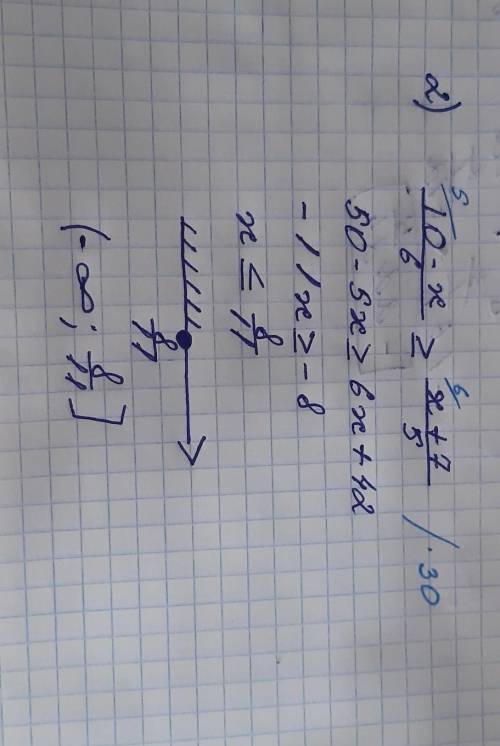 2) ⁵/ (10 - x)/6 ≥ ⁶/ (x + 7)/5 / · 30
50 - 5x ≥ 6x + 42
- 11x ≥ - 8
x ≤ 8/11
8/11
(- ∞; 8/11]